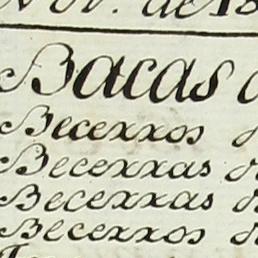 Nov. de 18
Bacas d
Becerros d
Becerras d
Becerras d
Becerros d